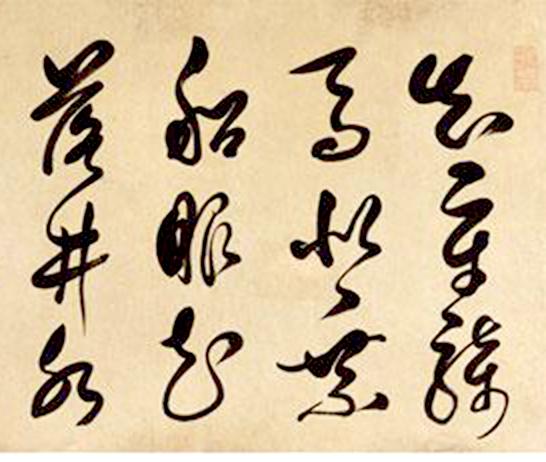 知章騎
馬似乘
船眼花
落井水